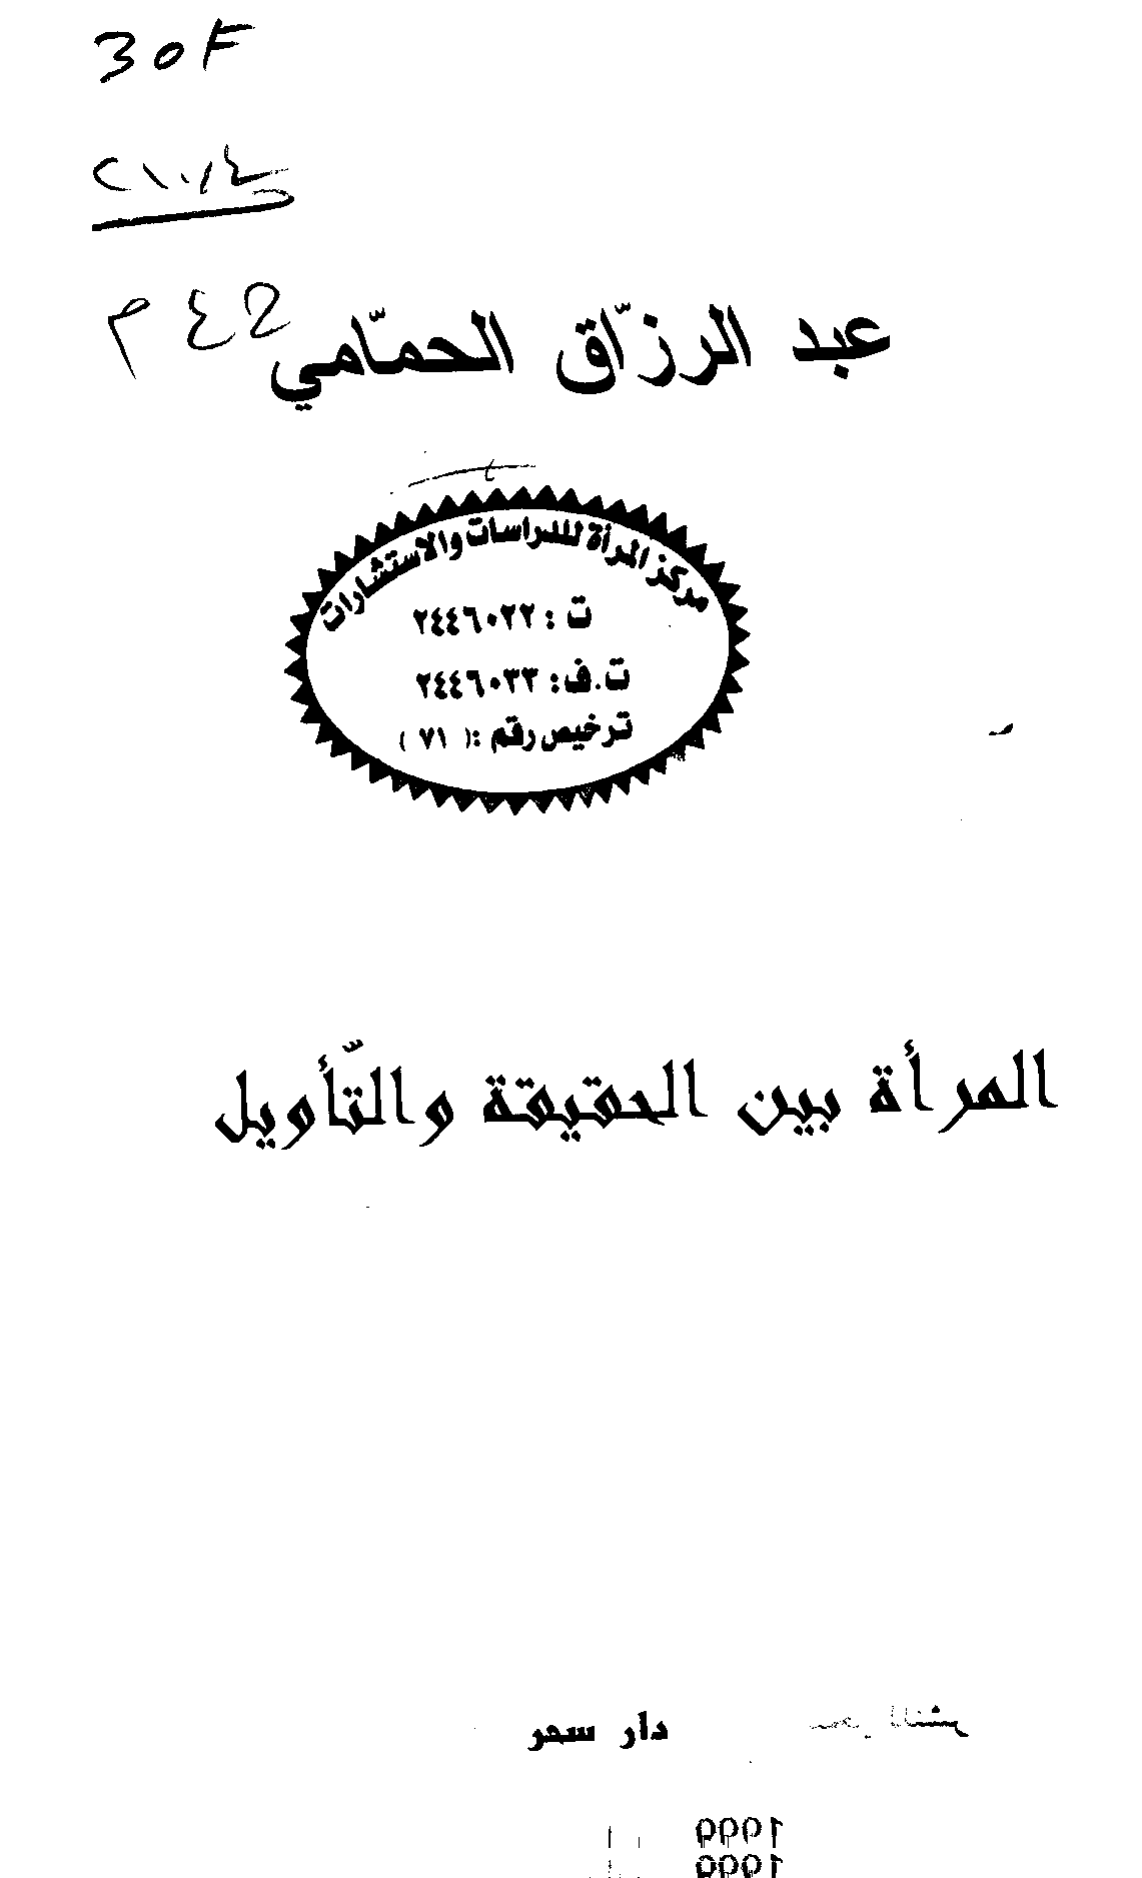 30F
٢١٠١٤
عبد الرزّاق الحمّامي
مركز المرأة للدراسات والاستشارات
ت : ٢٤٤٦٠٢٢
ت.ف: ٢٤٤٦٠٣٣
ترخيص رقم :( ٧١ )
المرأة بين الحقيقة والتّأويل
دار سحر
1999
1999